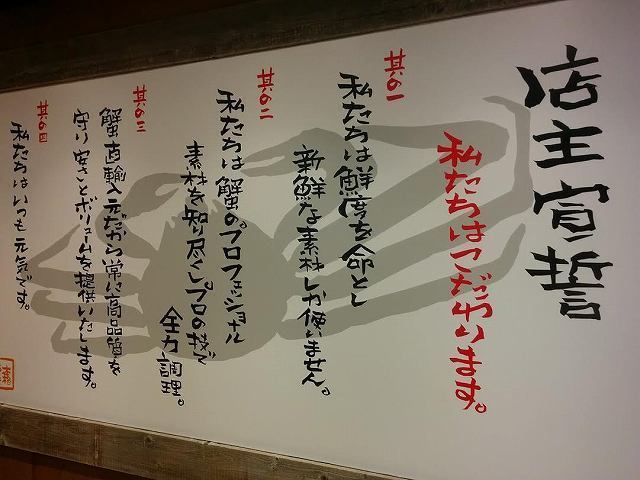 店主宣誓
私たちはこだわります。
其の一
私たちは鮮度を命とし
新鮮な素材しか使いません。
其の二
私たちは蟹のプロフェッショナル
素材を知り尽くしプロの技で
全力調理。
其の三
蟹直輸入元だから常に高品質を
守り安さとボリュームを提供いたします。
其の四
私たちはいつも元気です。